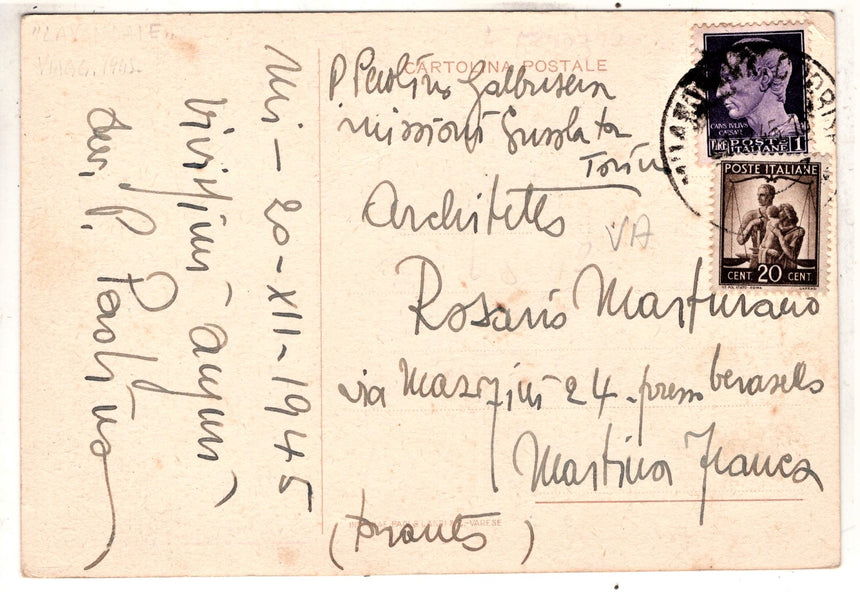 "LAVENO ALE..."
VIAGG. 1945.
Mi - 20-XII-1945
Vivissimi auguri
dev. P. Paolino
CARTOLINA POSTALE
P. Paolino Galbusera
missioni Consolata
Torino
Architetto
VA
Rosario Marturano
via Mazzini 24 - presso
Martina Franca
(Taranto)
VARESE
MILANO
CAIVS IVLIVS
CAESAR
LIRE POSTE ITALIANE 1
POSTE ITALIANE
CENT. 20 CENT.